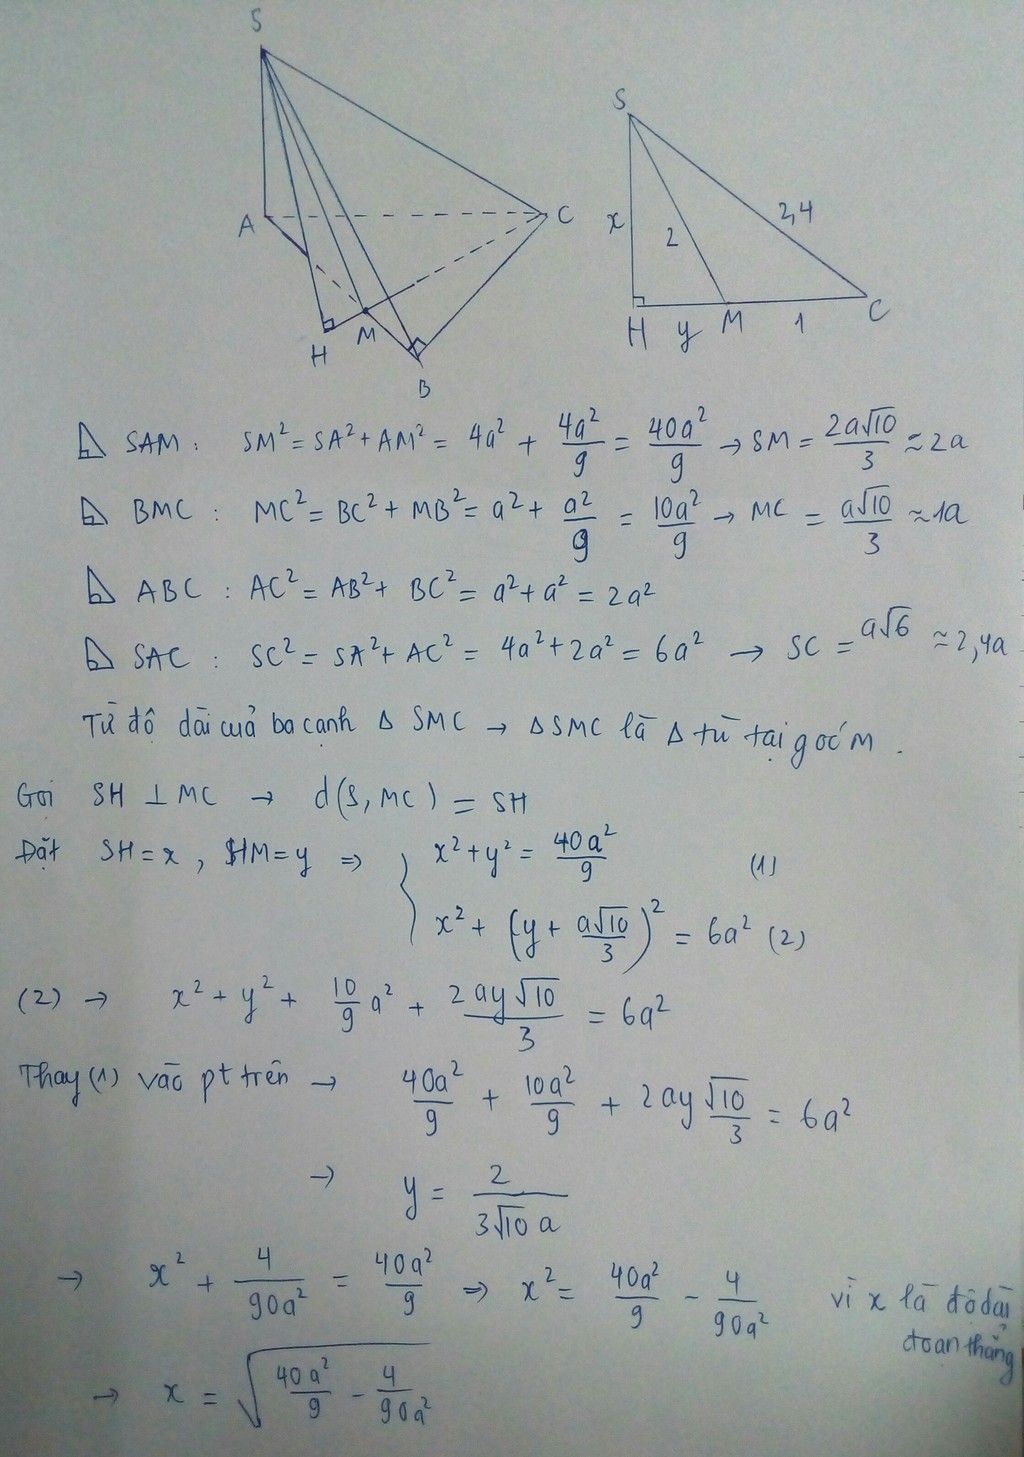 S
A
C
H
M
B
S
x
2
2,4
H
y
M
1
C
⊿ SAM : SM² = SA² + AM² = 4a² + 4a²/9 = 40a²/9 → SM = 2a√10/3 ≈ 2a
⊿ BMC : MC² = BC² + MB² = a² + a²/9 = 10a²/9 → MC = a√10/3 ≈ 1a
⊿ ABC : AC² = AB² + BC² = a² + a² = 2a²
⊿ SAC : SC² = SA² + AC² = 4a² + 2a² = 6a² → SC = a√6 ≈ 2,4a
Từ độ dài cuả ba cạnh Δ SMC → Δ SMC là Δ tù tại góc M.
Gọi SH ⊥ MC → d(S, MC) = SH
Đặt SH = x, HM = y => { x² + y² = 40a²/9 (1)
x² + (y + a√10/3)² = 6a² (2)
(2) → x² + y² + 10/9 a² + 2ay√10/3 = 6a²
Thay (1) vào pt trên → 40a²/9 + 10a²/9 + 2ay√10/3 = 6a²
→ y = 2/(3√10 a)
→ x² + 4/(90a²) = 40a²/9 => x² = 40a²/9 - 4/(90a²) vì x là độ dài
đoạn thẳng
→ x = √(40a²/9 - 4/(90a²))